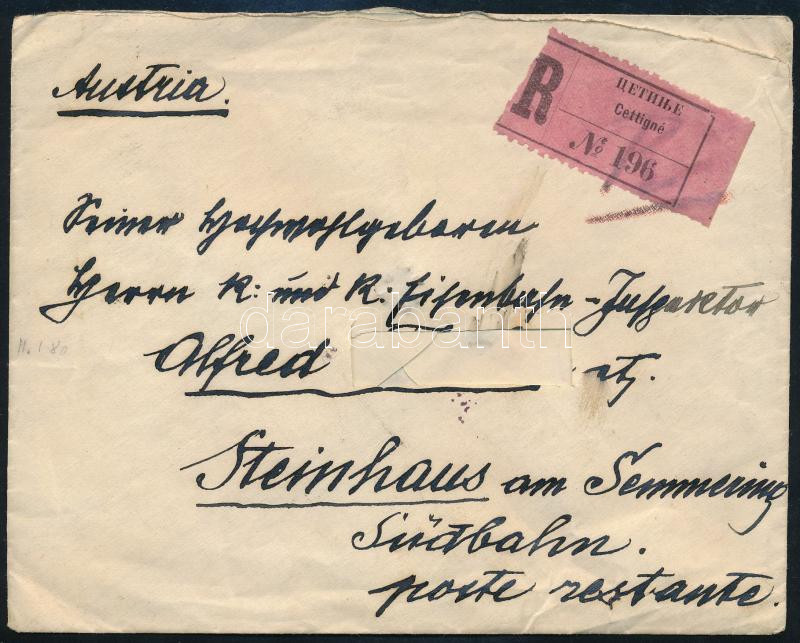 Austria.
R
ЦЕТИЊЕ
Cettigné
№ 196
Seiner Hochwohlgeboren
Herrn K: und K: Eisenbahn-Inspektor
Alfred etz.
Steinhaus am Semmering
Südbahn.
poste restante.
darabanth